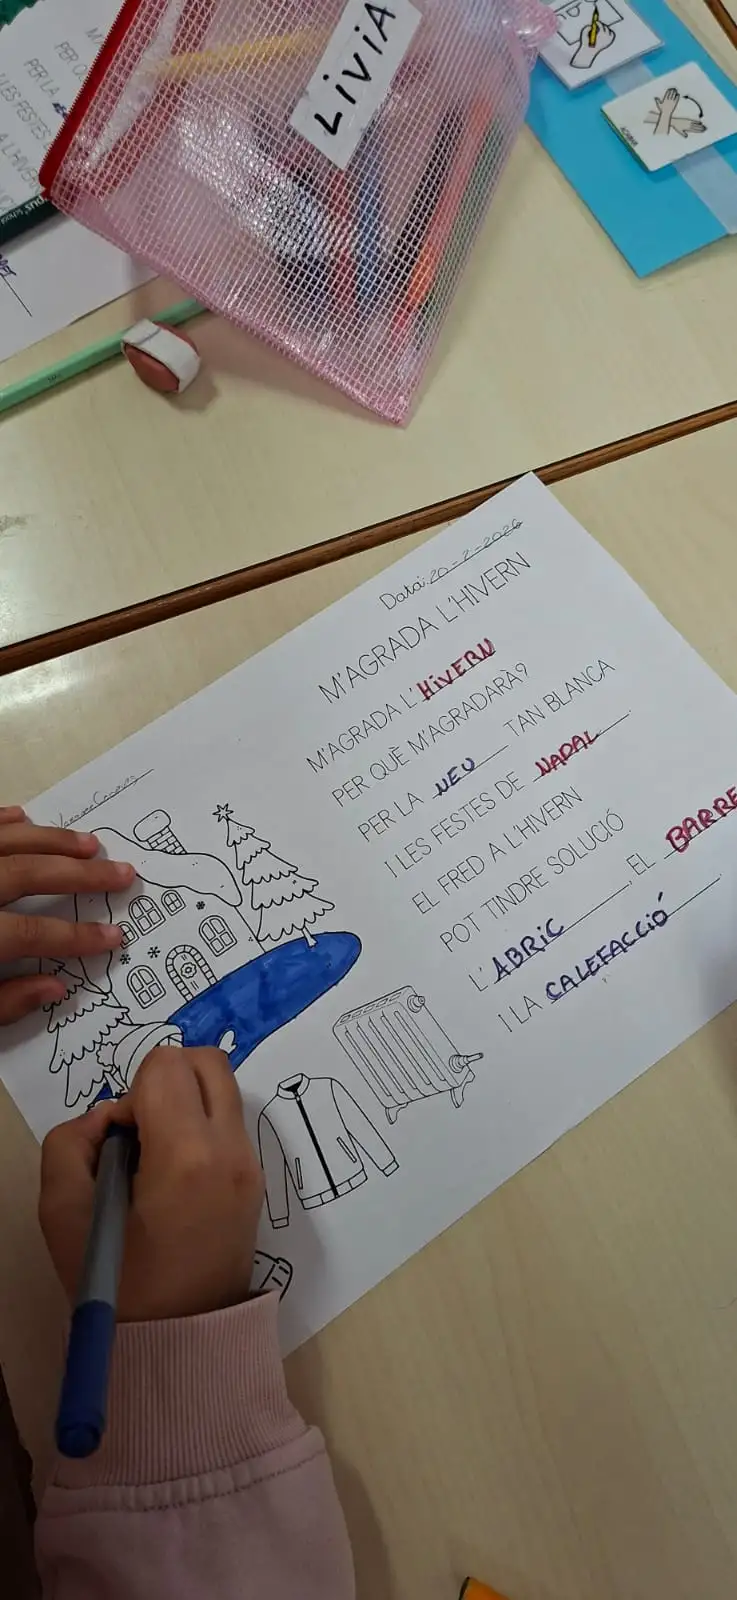 LiViA
Data: 20-2-2026
M'AGRADA L'HIVERN
M'AGRADA L'HiVERN
PER QUÈ M'AGRADARÀ?
PER LA NEU TAN BLANCA
I LES FESTES DE NADAL.
EL FRED A L'HIVERN
POT TINDRE SOLUCIÓ
L'ABRiC, EL BARRE
I LA CALEFACCiÓ.